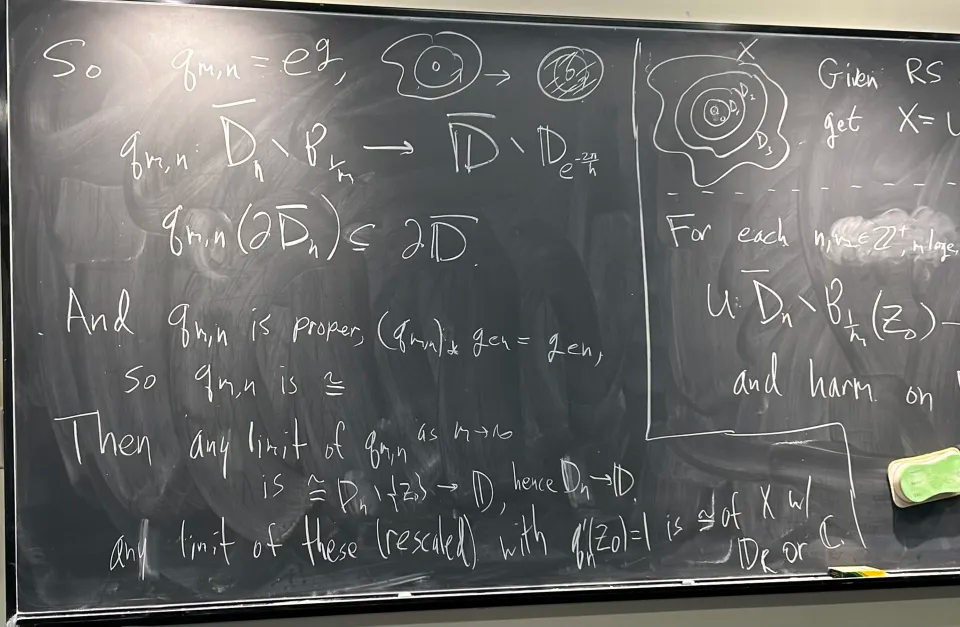 So q_{m,n} = e^g, →
q_{m,n}: \overline{D}_n \ B_{1/m} → \overline{𝔻} \ 𝔻_{e^{-2π/h}}
q_{m,n}(∂\overline{D}_n) ⊆ ∂\overline{𝔻}.
And q_{m,n} is proper, (q_{m,n})_* gen = gen,
so q_{m,n} is ≅
Then any limit of q_{m,n} as m→∞
is ≅ D_n \ {z_0} → 𝔻, hence D_n → 𝔻.
any limit of these (rescaled) with q_n'(z_0)=1 is ≅ of X w/
𝔻_R or ℂ.
X
D_1 D_2
D_3
Given RS
get X = U
For each n, m ∈ ℤ^+, m large,
u: \overline{D}_n \ B_{1/m}(z_0) →
and harm. on